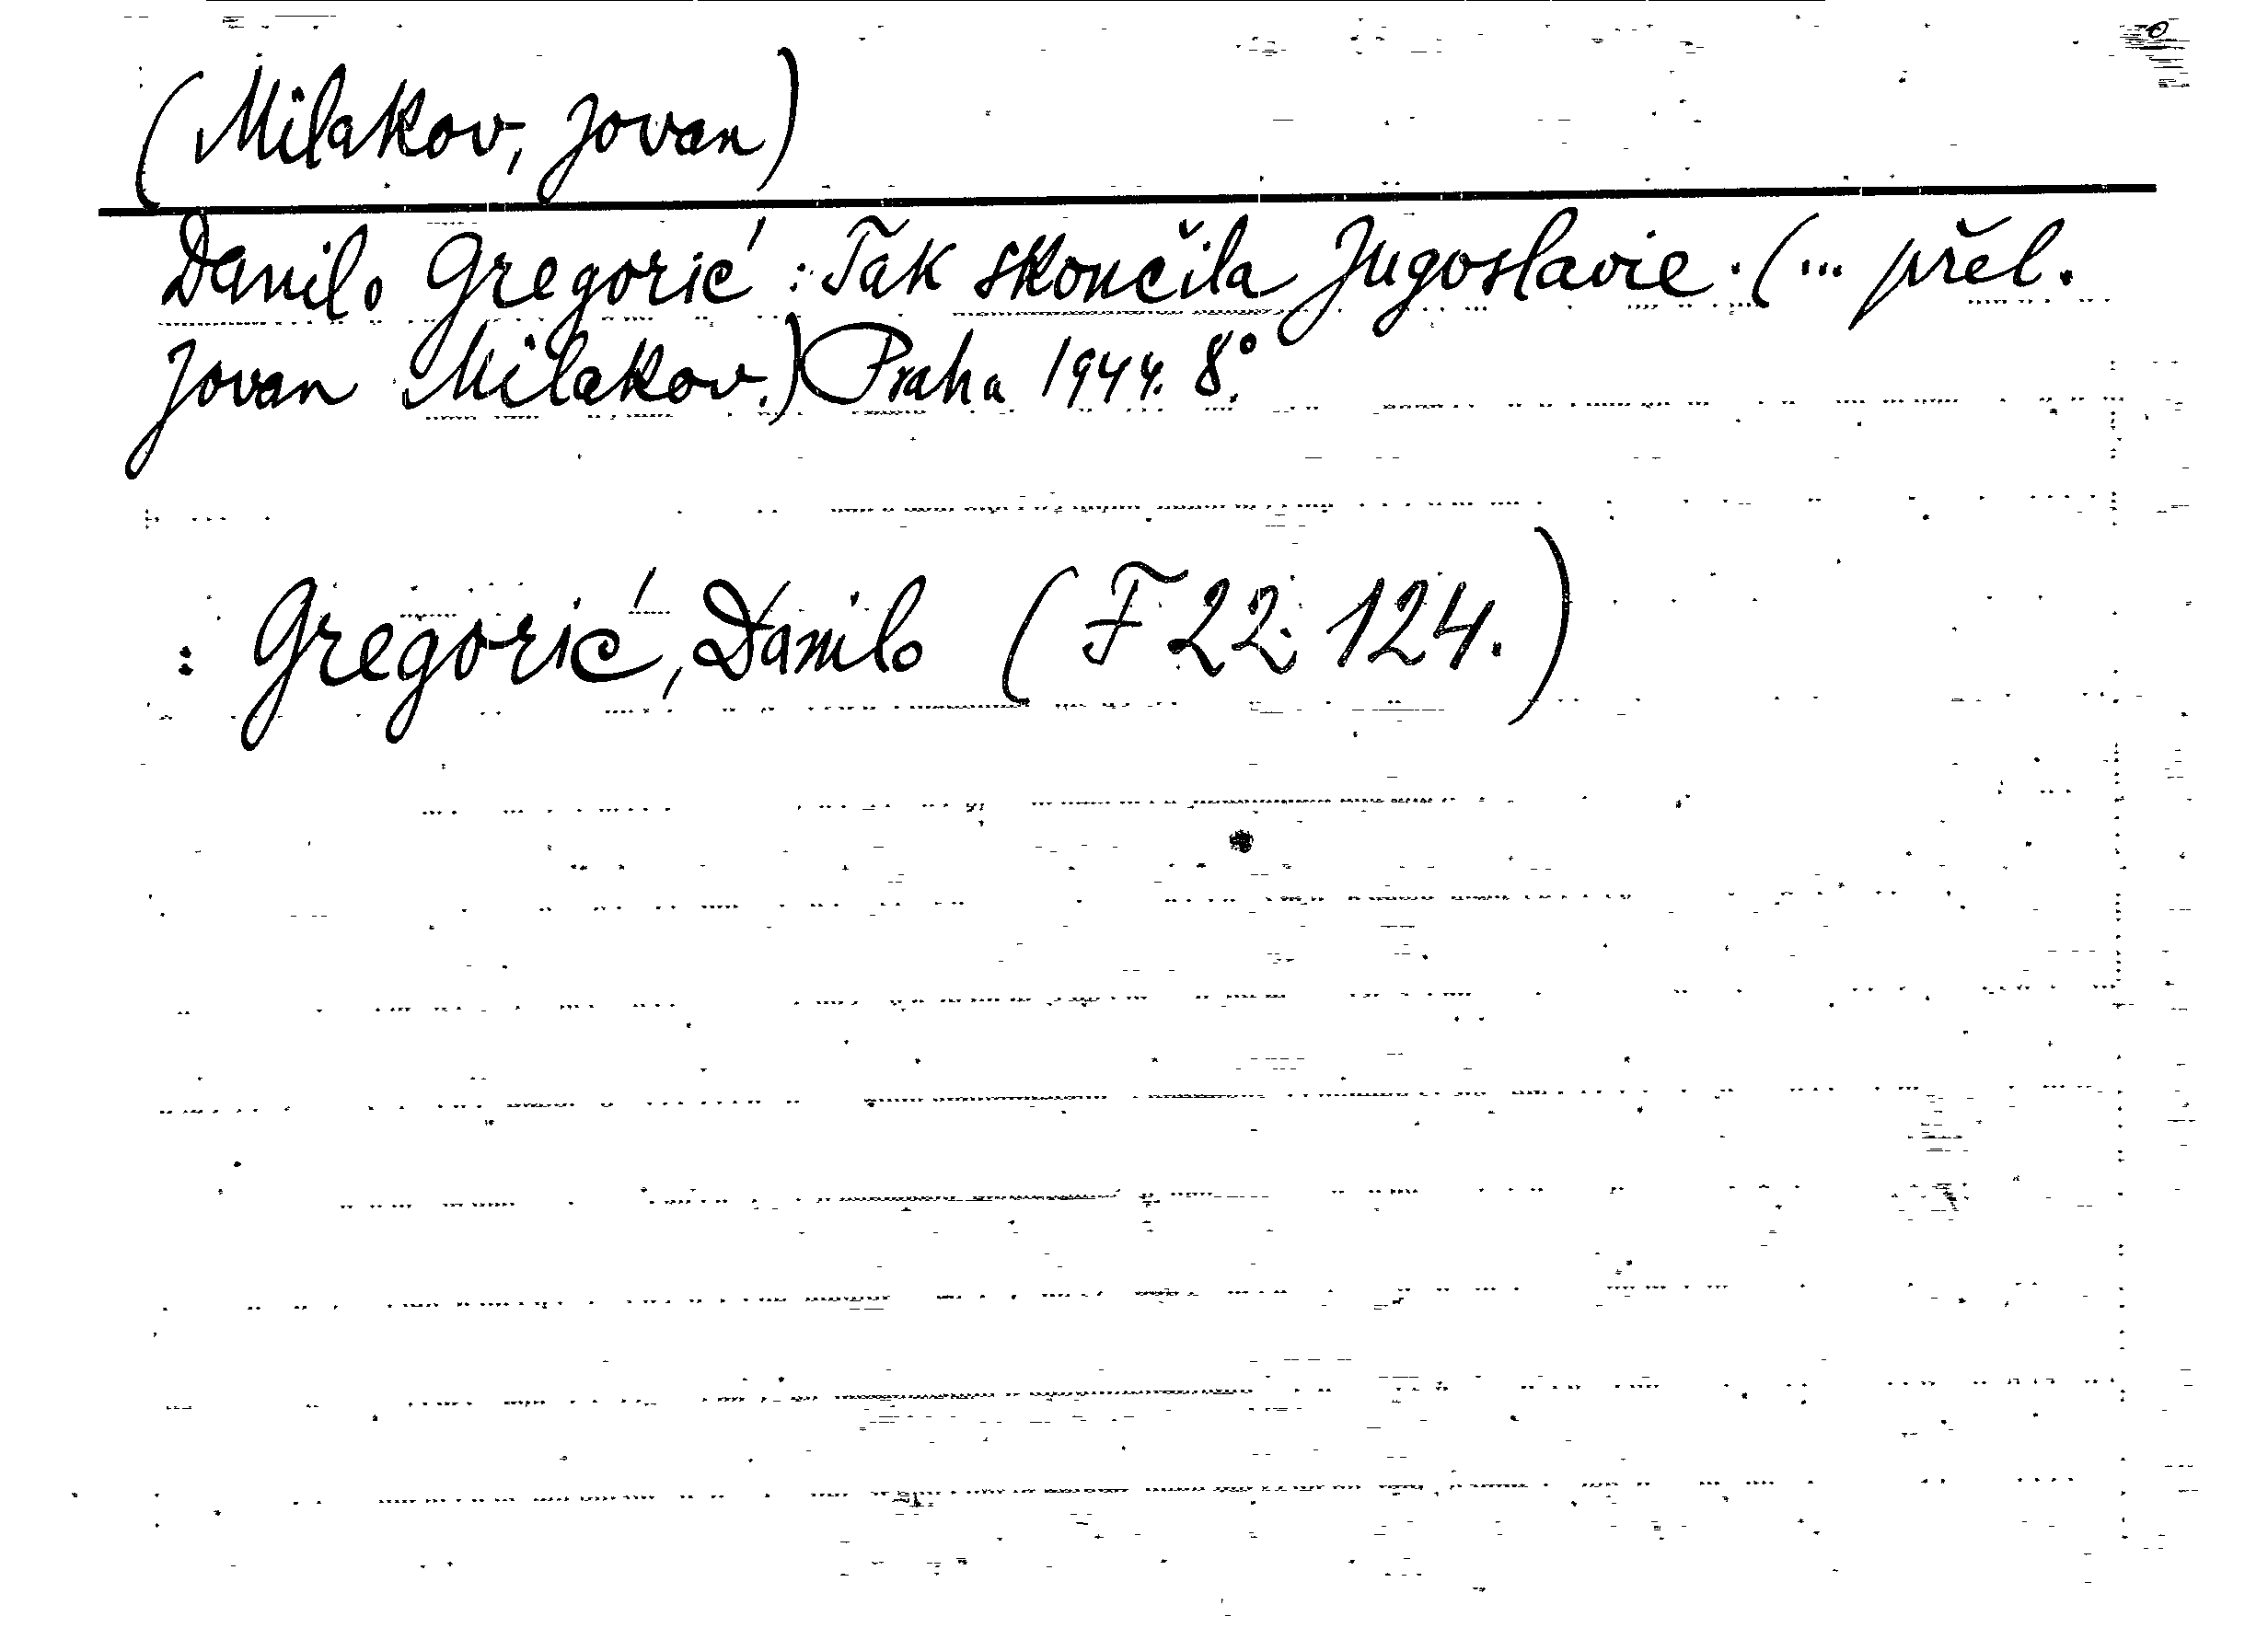 (Milakov, Jovan)
Danilo Gregorić : Tak skončila Jugoslavie. (... přel.
Jovan Milakov.) Praha 1944. 8°.
: Gregorić, Danilo (F 22. 124.)